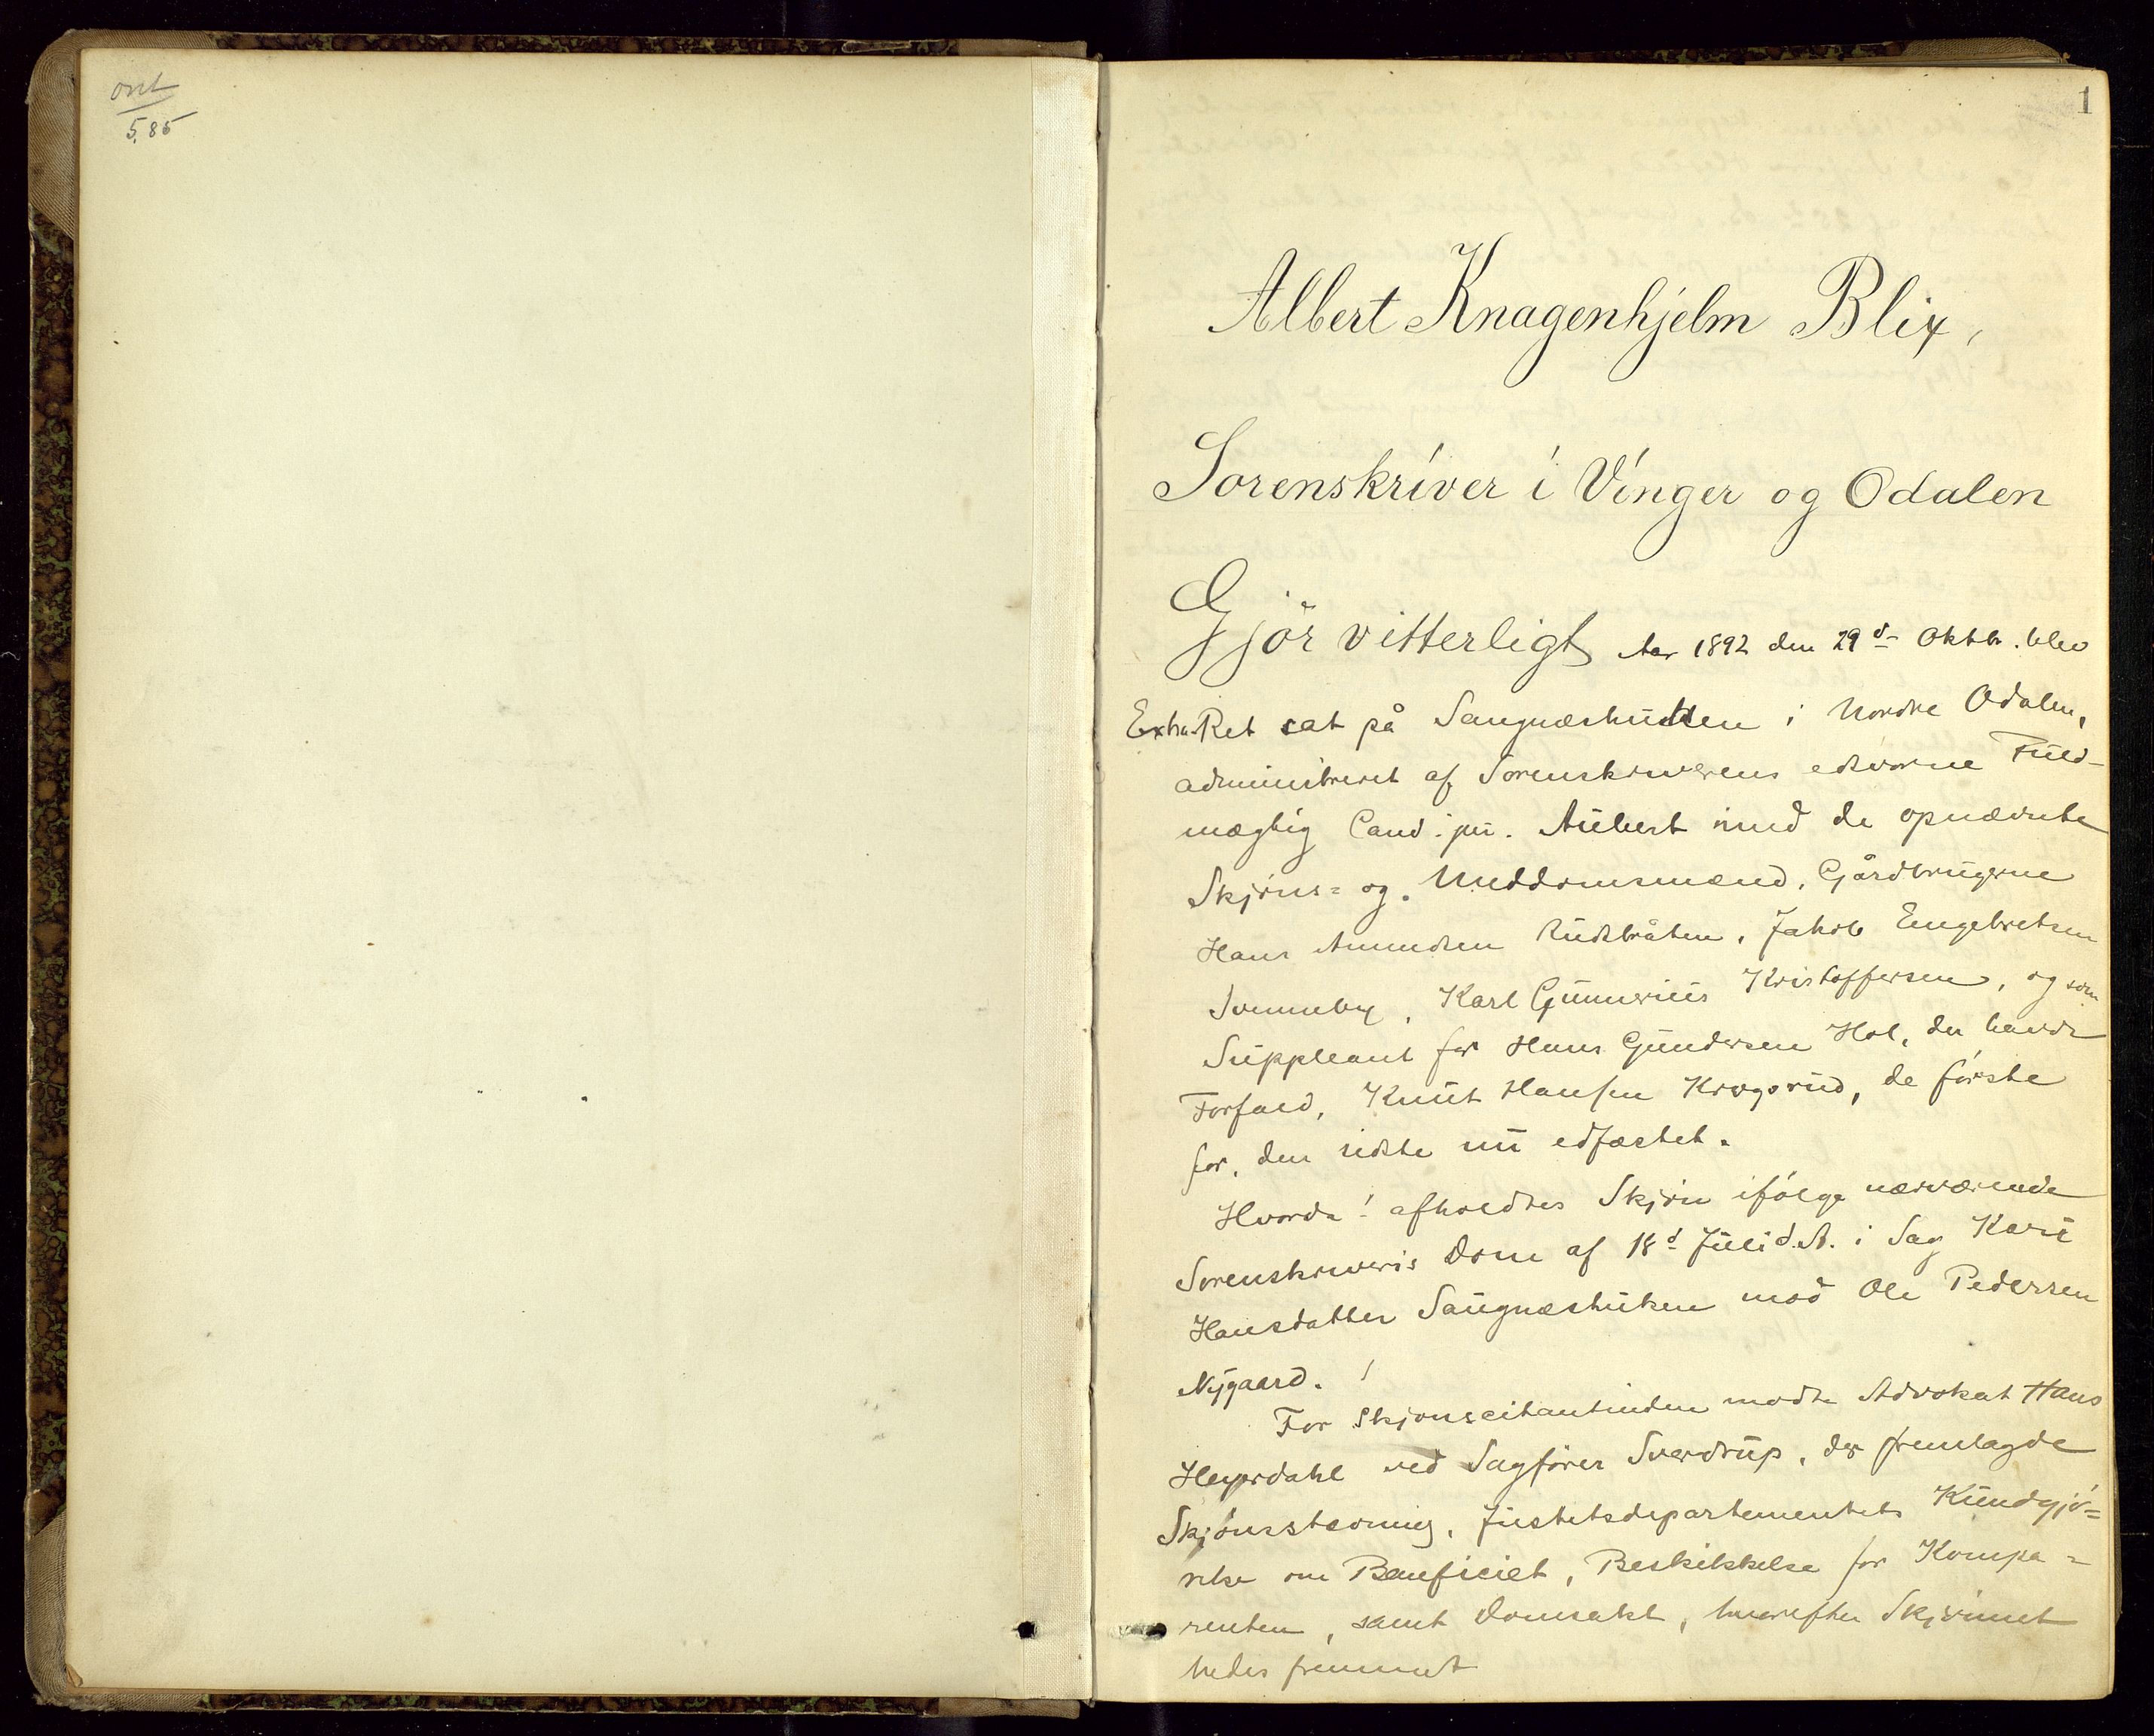 ont
5.85
1
Albert Knagenhjelm Blix,
Sorenskriver i Vinger og Odalen
Gjör vitterligt Aar 1892 den 29d Oktbr. blev
Extra-Ret sat på Saugnæshutten i Nordre Odalen,
administreret af Sorenskriverens edsvorne Fuld-
mægtig Cand. jur. Aubert med de opnævnte
Skjöns= og Meddomsmænd, Gårdbrugerne
Hans Amundsen Rudsbråten, Jakob Engebretsen
Svenneby, Karl Gunnerius Kristoffersen, og som
Suppleant for Hans Gundersen Hol, der havde
Forfald, Knut Hansen Krogsrud, de förste
för, den sidste nu edfæstet.
Hvorda! afholdtes Skjön ifölge nærværende
Sorenskriveris Dom af 18d Juli d.A. i Sag Kari
Hansdatter Saugnæshuken mod Ole Pedersen
Nygaard. !
For Skjönscitantinden mødte Advokat Hans
Heyerdahl ved Sagförer Sverdrup, der fremlagde
Skjönsstevning, Justitsdepartementets Kundgjö=
relse om Beneficiet, Beskikkelse for Kompa=
renten, samt Domsakt, hvorefter Skjönnet
bedes fremmet